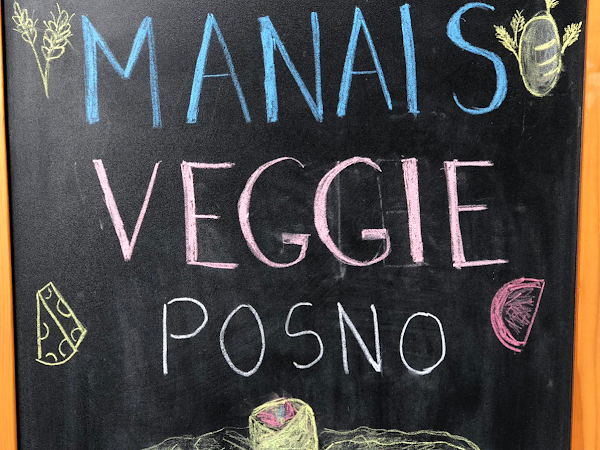 MANAIS
VEGGIE
POSNO